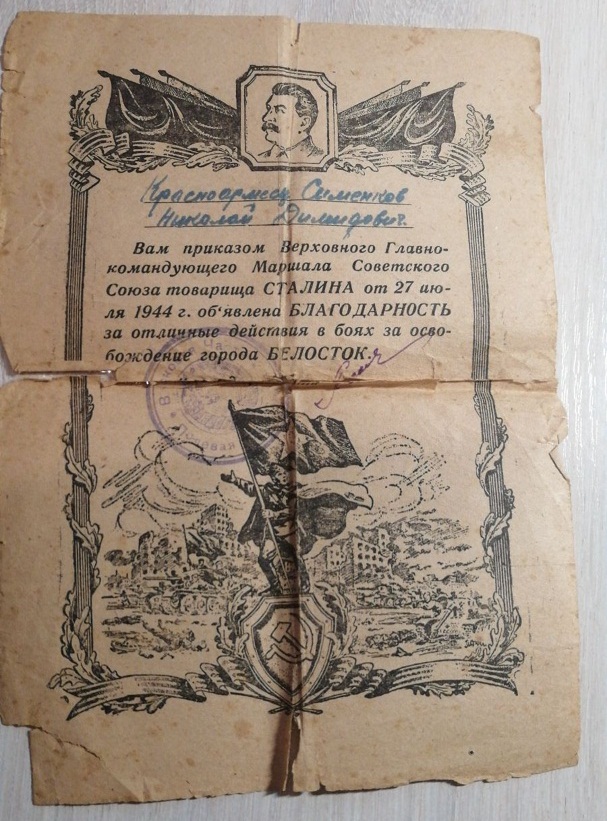 Красноармеец Сименков
Николай Димидович.
Вам приказом Верховного Главно-
командующего Маршала Советского
Союза товарища СТАЛИНА от 27 ию-
ля 1944 г. об'явлена БЛАГОДАРНОСТЬ
за отличные действия в боях за осво-
бождение города БЕЛОСТОК.